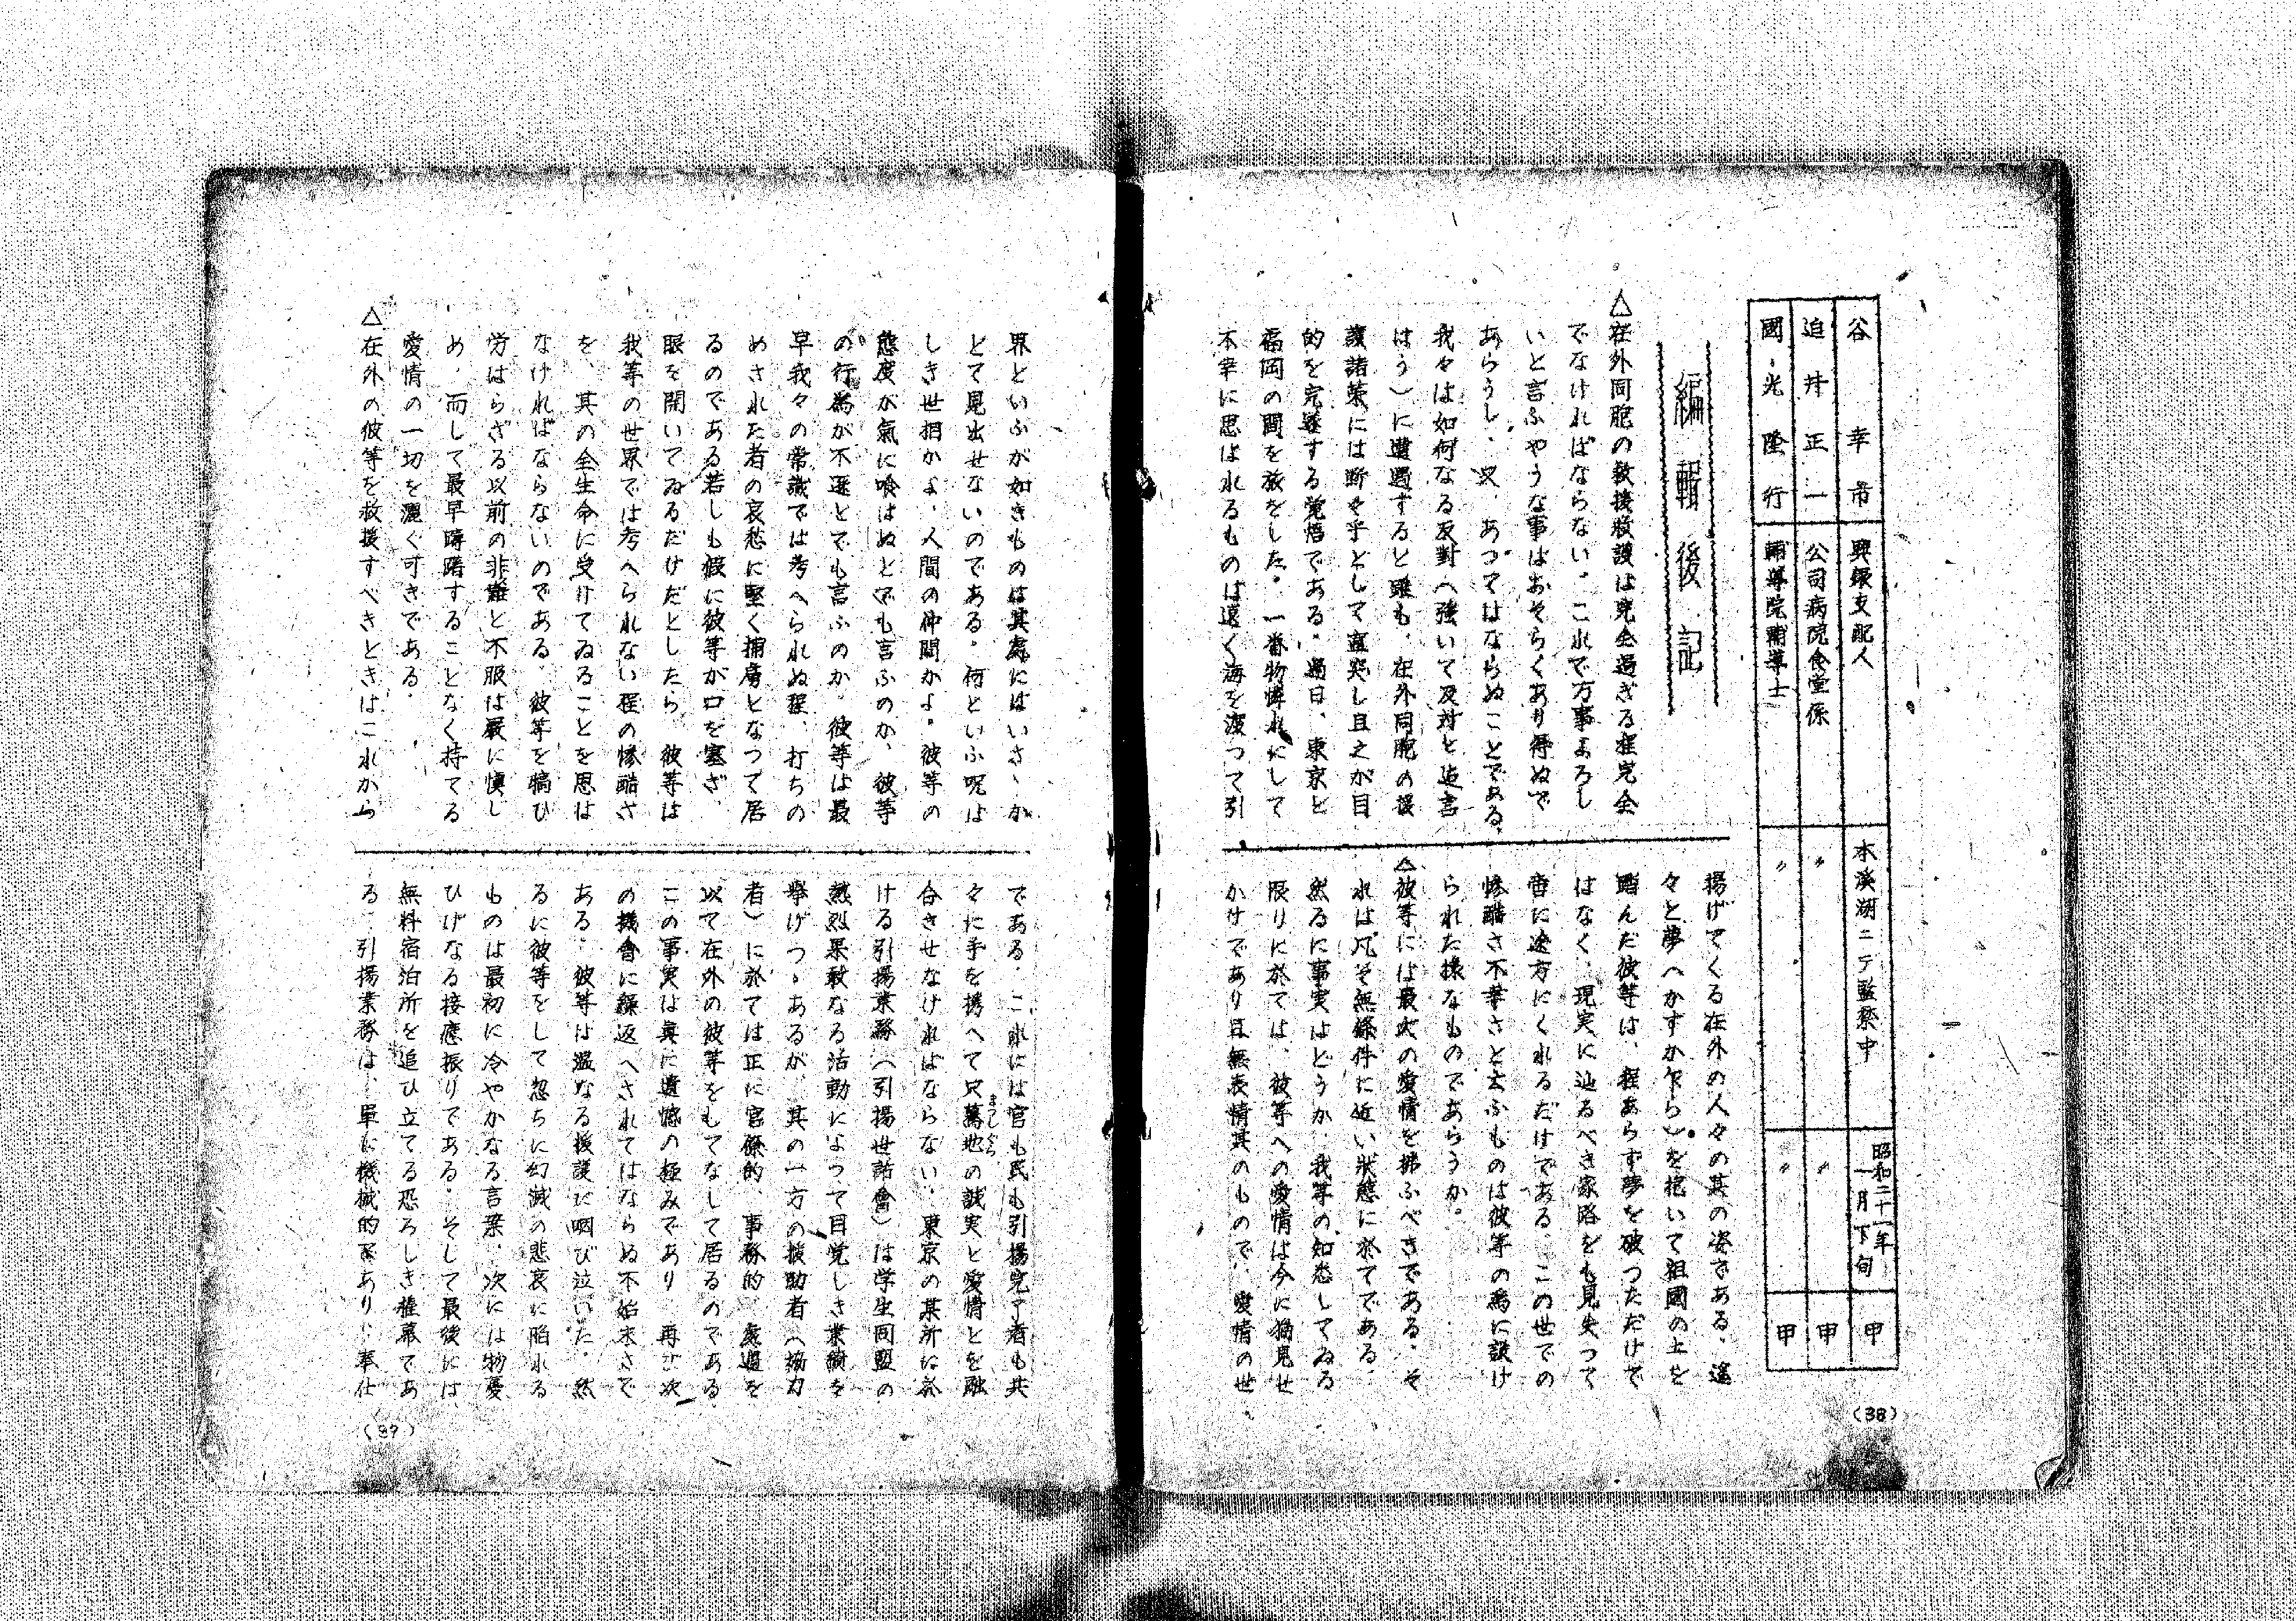 谷 幸市 興銀支配人 本溪湖ニテ監禁中 昭和二十一年一月下旬 甲
迫井正一 公司病院食堂係 〃 〃 甲
國光隆行 輔導院輔導士 〃 〃 甲
編輯後記
△在外同胞の救援救護は完全過ぎる程完全
でなければならない。これで万事よろし
いと言ふやうな事はおそらくあり得ぬで
あらうし、又、あつてはならぬことである。
我々は如何なる反對へ強いて反対と迄言
はう)に遭遇すると雖も、在外同胞の援
護諸策には断々乎として直突し且之が目
的を完遂する覚悟である。過日、東京と
福岡の間を旅をした。一番物憐れにして
不幸に思はれるものは遠く海を渡つて引
揚げてくる在外の人々の其の姿である。遙
々と夢へかすか乍ら)を抱いて祖國の土を
踏んだ彼等は、程あらず夢を破つただけで
はなく、現実に辿るべき家路をも見失つて
啻に途方にくれるだけである。この世での
惨酷さ不幸さと云ふものは彼等の為に設け
られた様なものであらうか。
△彼等には最大の愛情を拂ふべきである。そ
れは凡そ無條件に近い狀態に於てである。
然るに事実はどうか。我等の知悉してゐる
限りに於ては、彼等への愛情は今に猶見せ
かけであり且無表情其のもので、愛情の世
(38)
界といふが如きものは其處にはいさゝか
とて見出せないのである。何といふ呪は
しき世相かよ、人間の仲間かよ。彼等の
態度が氣に喰はぬとでも言ふのか、彼等
の行為が不逞とでも言ふのか。彼等は最
早我々の常識では考へられぬ程、打ちの
めされた者の哀愁に堅く捕虜となつて居
るのである若しも假に彼等が口を塞ざ、
眼を開いてゐるだけだとしたら、彼等は
我等の世界では考へられない程の惨酷さ
を、其の全生命に受けてゐることを思は
なければならないのである。彼等を犒ひ
労はらざる以前の非難と不服は嚴に慎し
め、而して最早躊躇することなく持てる
愛情の一切を灑ぐ可きである。
△在外の彼等を救援すべきときはこれから
である。これには官も民も引揚完了者も共
々に手を携へて只驀地の誠実と愛情とを融
合させなければならない。東京の某所に於
ける引揚業務(引揚世話會)は学生同盟の
熱烈果敢なる活動によつて目覚しき業績を
擧げつゝあるが、其の一方の援助者(協力
者)に於ては正に官僚的、事務的處遇を
以て在外の彼等をもてなして居るのである
この事実は眞に遺憾の極みであり、再び次
の機會に繰返へされてはならぬ不始末さで
ある。彼等は溫なる援護に咽び泣いた。然
るに彼等をして忽ちに幻滅の悲哀に陥れる
ものは最初に冷やかなる言葉、次には物憂
ひげなる接應振りである。そして最後には
無料宿泊所を追ひ立てる恐ろしき権幕であ
る。引揚業務は、單に機械的であり、奉仕
(39)